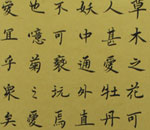 草木之花可
人甚愛牡丹
妖中通外直
不可褻玩焉
也噫菊之愛
愛宜乎衆矣